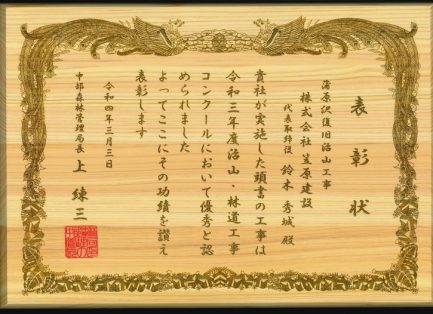 表彰状
蒲原沢復旧治山工事
株式会社笠原建設
代表取締役 鈴木秀城殿
貴社が実施した頭書の工事は
令和三年度治山・林道工事
コンクールにおいて優秀と認
められました
よってここにその功績を讃え
表彰します
令和四年三月三日
中部森林管理局長 上練三